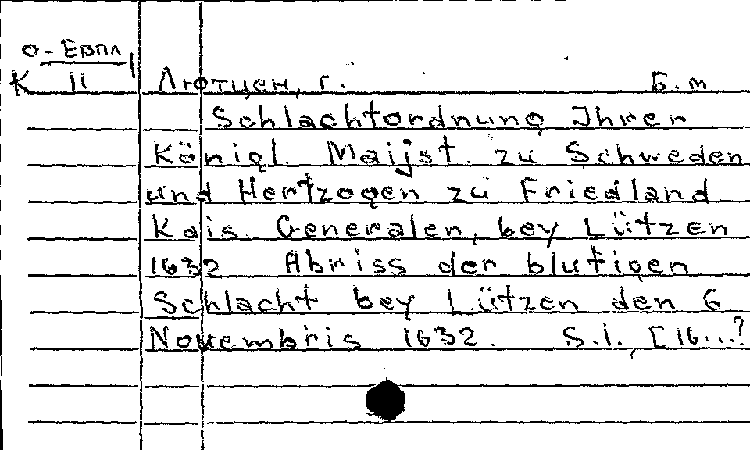 О-Евпл
К 11
Лютцен, г. Б.м
Schlachtordnung Ihrer
Königl Maijst. zu Schweden
und Hertzogen zu Friedland
Kais. Generalen, bey Lützen
1632 Abriss der blutigen
Schlacht bey Lützen den 6
Novembris 1632. S.l., [16...?